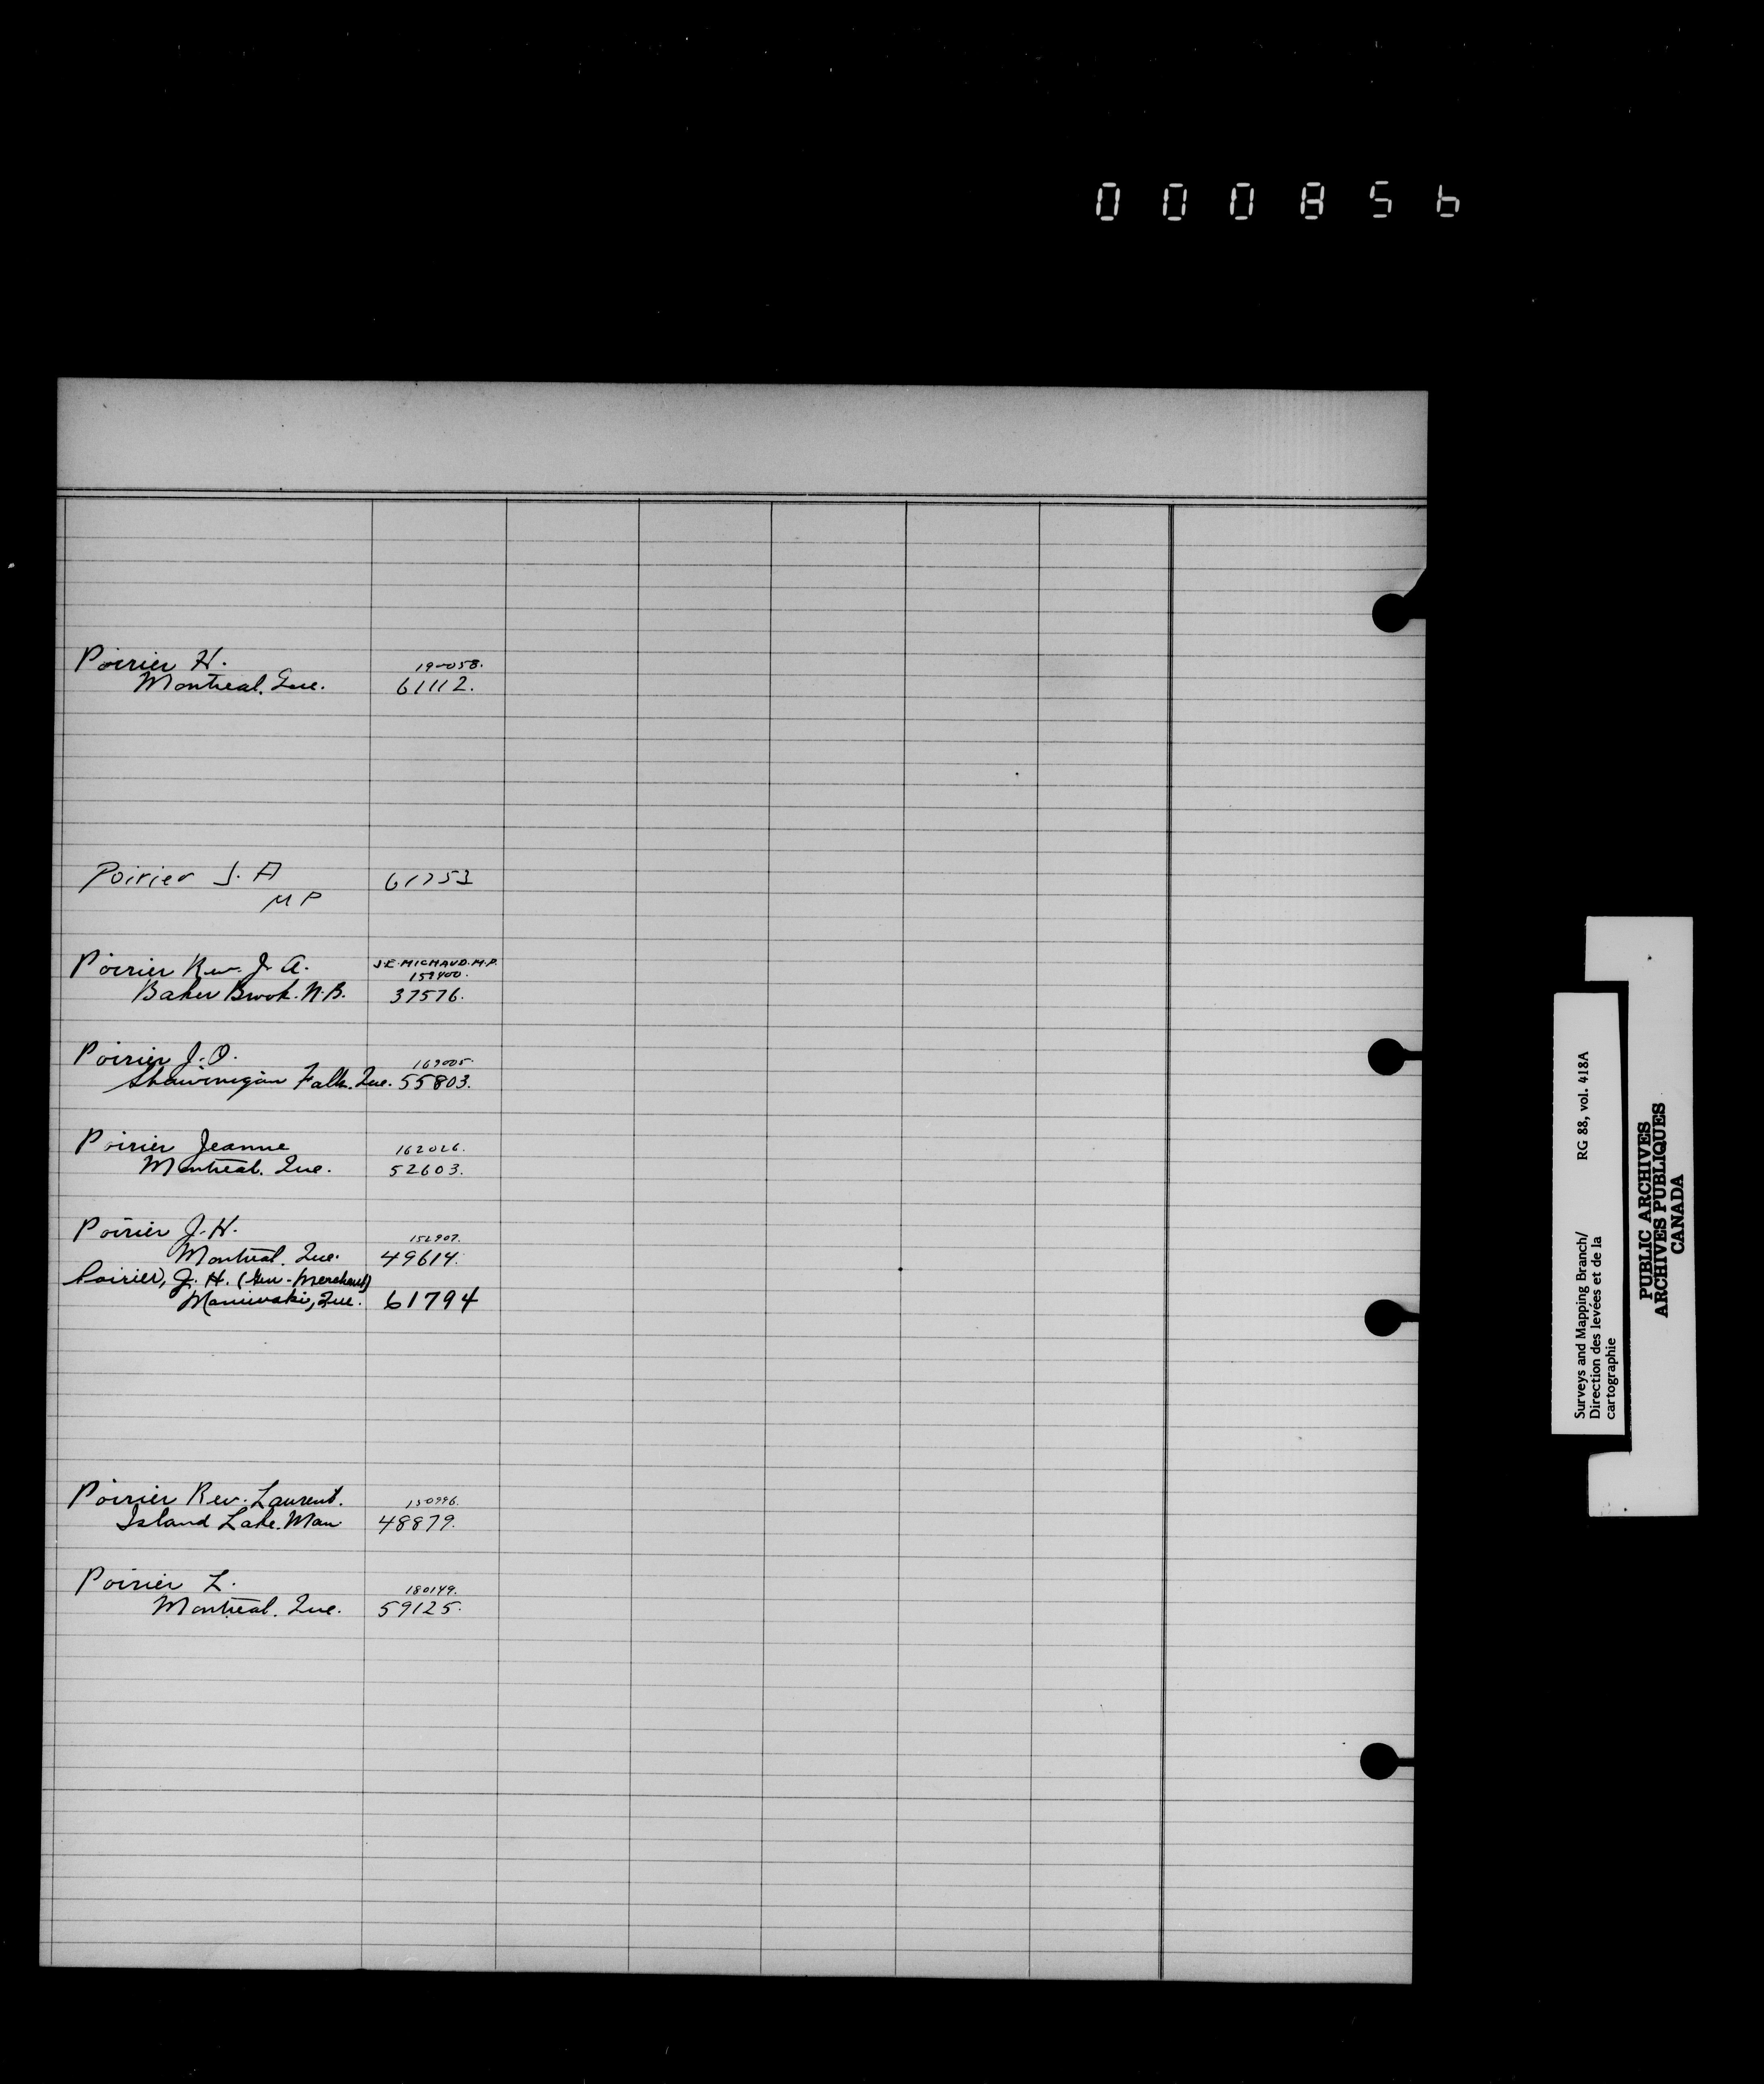 000856
Poirier H. 190058.
Montreal. Que. 61112.
Poirier J. A 61753
MP
Poirier Rev. J. A. J.E. MICHAUD. M.P.
159400.
Baker Brook. N.B. 37576.
Poirier J. O. 169005.
Shawinigan Falls. Que. 55803.
Poirier Jeanne 162026.
Montreal. Que. 52603.
Poirier J. H. 152907.
Montreal. Que. 49614.
Poirier, J. H. (Gen-Merchant)
Maniwaki, Que. 61794
Poirier Rev. Laurent. 150996.
Island Lake. Man 48879.
Poirier L. 180149.
Montreal. Que. 59125.
Surveys and Mapping Branch/ RG 88, vol. 418A
Direction des levées et de la
cartographie
PUBLIC ARCHIVES
ARCHIVES PUBLIQUES
CANADA